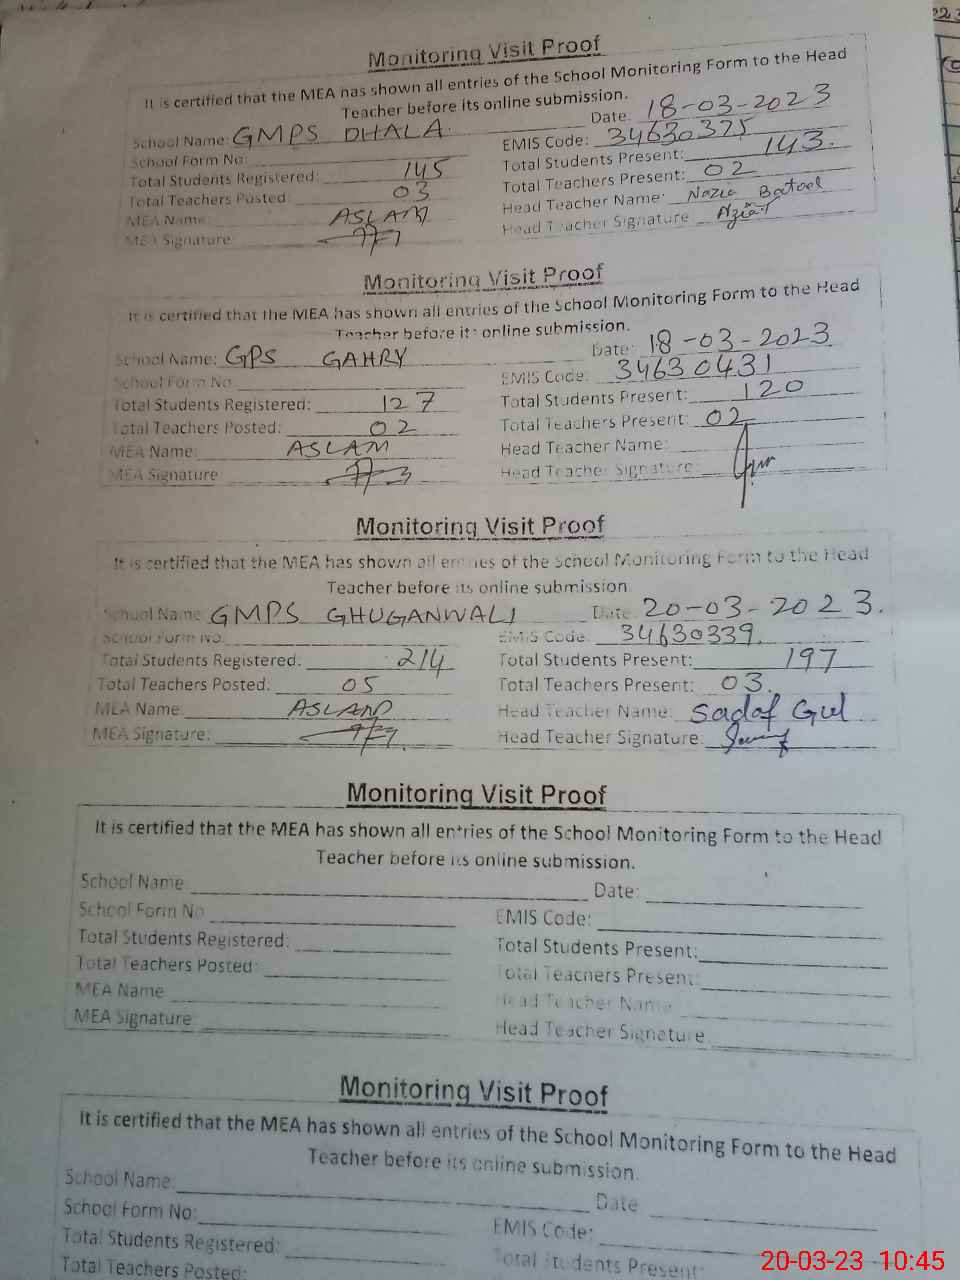 Monitoring Visit Proof
It is certified that the MEA has shown all entries of the School Monitoring Form to the Head
Teacher before its online submission.
School Name: GMPS DHALA. Date: 18-03-2023
School Form No EMIS Code: 34630375
Total Students Registered: 145 Total Students Present: 143.
Total Teachers Posted: 03 Total Teachers Present: 02
MEA Name: ASLAM Head Teacher Name: Nazia Batool
MEA Signature: Head Teacher Signature
Monitoring Visit Proof
It is certified that the MEA has shown all entries of the School Monitoring Form to the Head
Teacher before its online submission.
School Name: GPS GAHRY Date: 18-03-2023
School Form No EMIS Code: 34630431
Total Students Registered: 127 Total Students Present: 120
Total Teachers Posted: 02 Total Teachers Present: 02
MEA Name: ASLAM Head Teacher Name:
MEA Signature Head Teacher Signature
Monitoring Visit Proof
It is certified that the MEA has shown all entries of the School Monitoring Form to the Head
Teacher before its online submission
School Name GMPS GHUGANWALI Date 20-03-2023.
School Form No. EMIS Code: 34630339.
Total Students Registered: 214 Total Students Present: 197
Total Teachers Posted: 05 Total Teachers Present: 03.
MEA Name ASLAM Head Teacher Name: Sadaf Gul
MEA Signature: Head Teacher Signature:
Monitoring Visit Proof
It is certified that the MEA has shown all entries of the School Monitoring Form to the Head
Teacher before its online submission.
School Name Date:
School Form No EMIS Code:
Total Students Registered: Total Students Present:
Total Teachers Posted: Total Teachers Present:
MEA Name Head Teacher Name
MEA Signature Head Teacher Signature
Monitoring Visit Proof
It is certified that the MEA has shown all entries of the School Monitoring Form to the Head
Teacher before its online submission.
School Name: Date
School Form No: EMIS Code:
Total Students Registered: Total Students Present:
Total Teachers Posted:
20-03-23 10:45